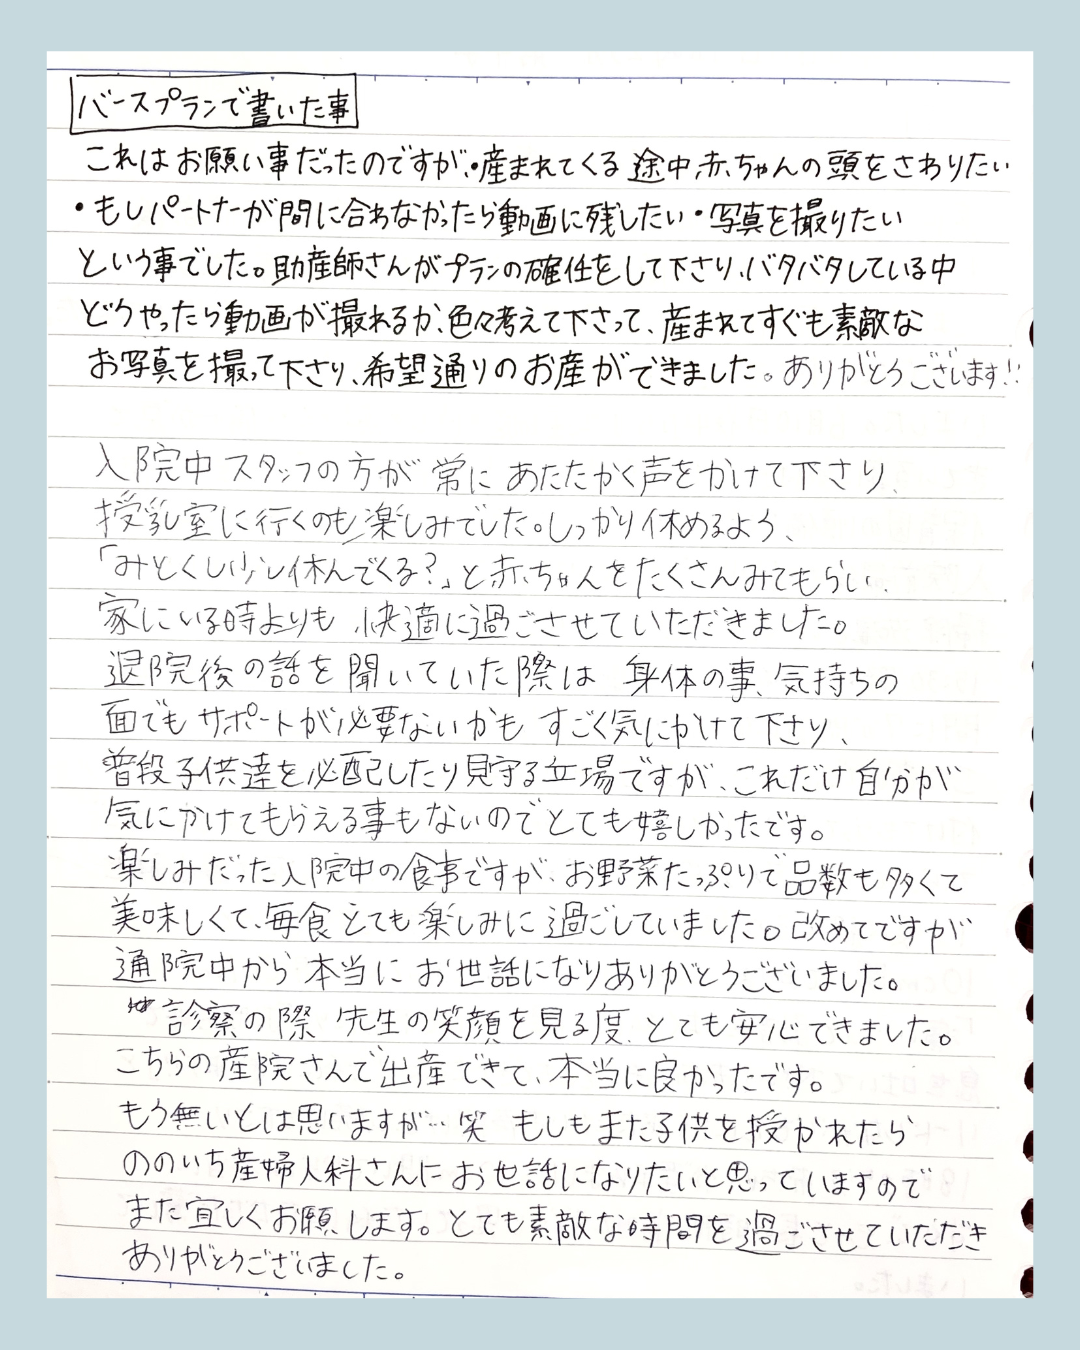 バースプランで書いた事
これはお願い事だったのですが、・産まれてくる途中赤ちゃんの頭をさわりたい
・もしパートナーが間に合わなかったら動画に残したい・写真を撮りたい
という事でした。助産師さんがプランの確任をして下さり、バタバタしている中
どうやったら動画が撮れるか、色々考えて下さって、産まれてすぐも素敵な
お写真を撮って下さり、希望通りのお産ができました。ありがとうございます!!
入院中スタッフの方が常にあたたかく声をかけて下さり、
授乳室に行くのも楽しみでした。しっかり休めるよう、
「みとくし少し休んでくる?」と赤ちゃんをたくさんみてもらい、
家にいる時よりも、快適に過ごさせていただきました。
退院後の話を聞いていた際は 身体の事、気持ちの
面でもサポートが必要ないかもすごく気にかけて下さり、
普段子供達を心配したり見守る立場ですが、これだけ自分が
気にかけてもらえる事もないのでとても嬉しかったです。
楽しみだった入院中の食事ですが、お野菜たっぷりで品数も多くて
美味しくて、毎食とても楽しみに過ごしていました。改めてですが
通院中から本当にお世話になりありがとうございました。
診察の際 先生の笑顔を見る度、とても安心できました。
こちらの産院さんで出産できて、本当に良かったです。
もう無いとは思いますが…笑 もしもまた子供を授かれたら
ののいち産婦人科さんにお世話になりたいと思っていますので
また宜しくお願いします。とても素敵な時間を過ごさせていただき
ありがとうございました。